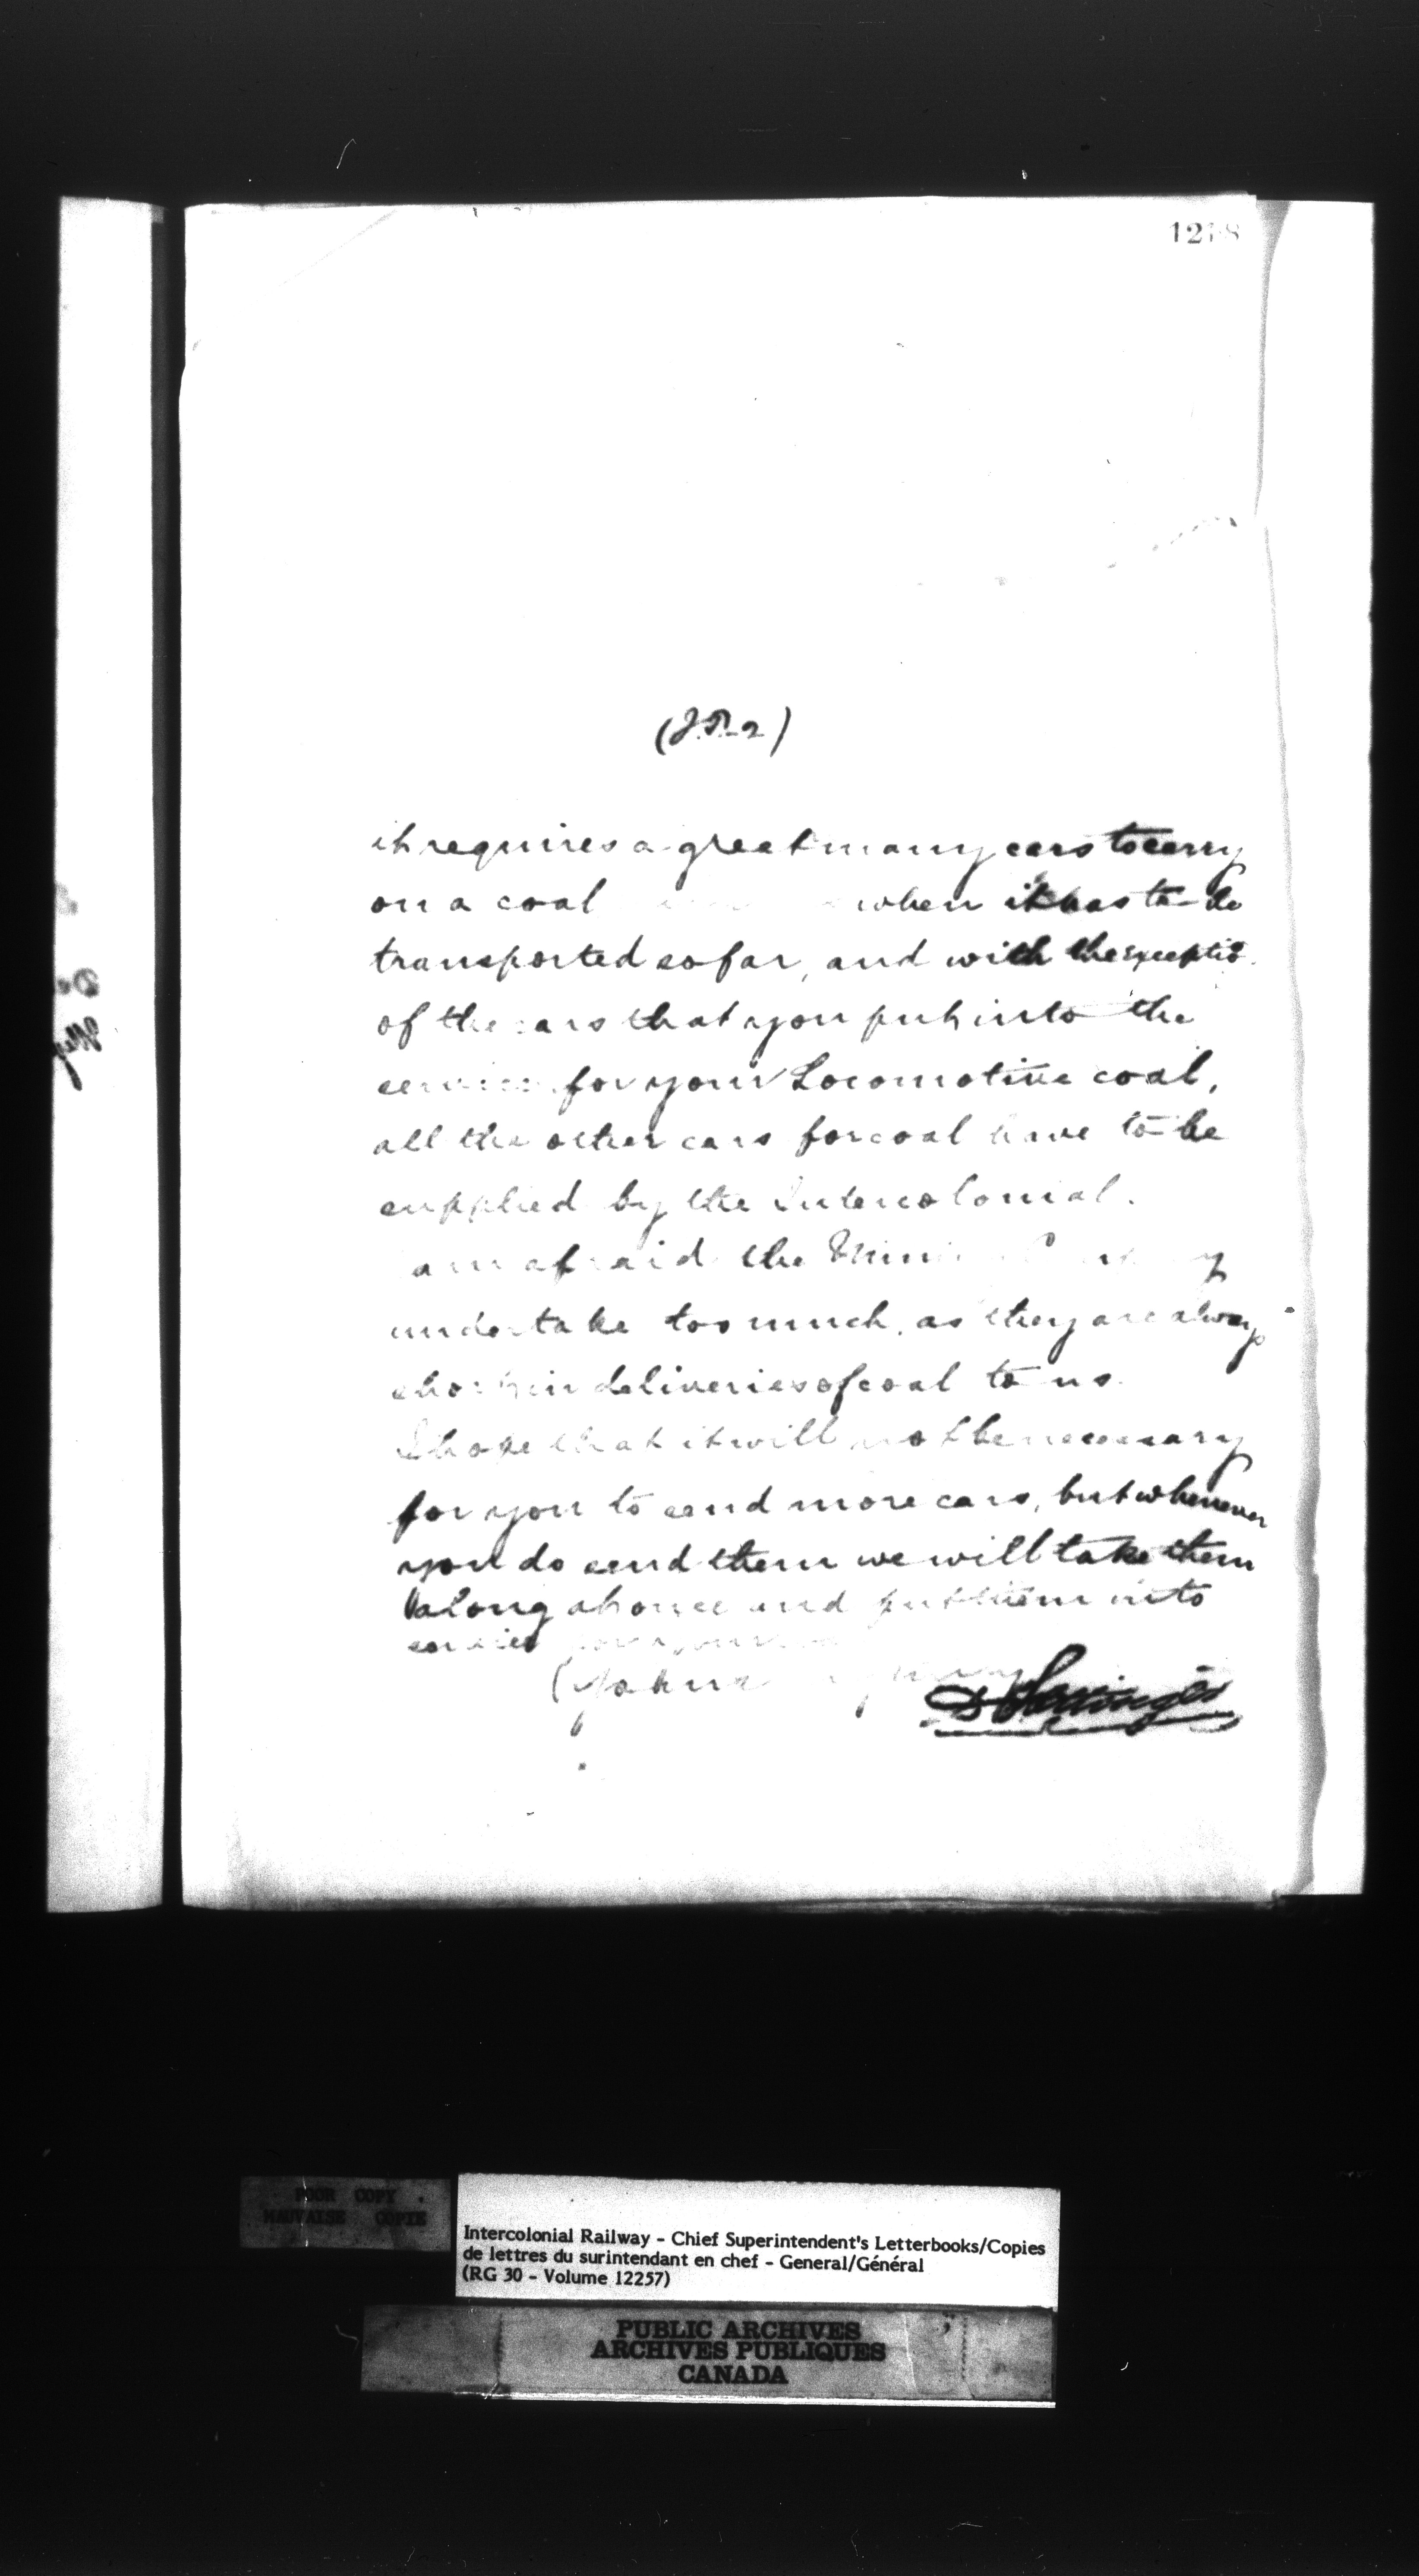 (J.P.-2)
it requires a great many cars to carry
on a coal when it has to be
transported so far, and with the exceptio
of the cars that you put into the
service for your Locomotive coal,
all the other cars for coal have to be
supplied by the Intercolonial.
am afraid the
undertake too much, as they are always
short in deliveries of coal to us.
I hope that it will not be necessary
for you to send more cars, but whenever
you do send them we will take them
along at once and put them into
service
Yours
POOR COPY
MAUVAISE COPIE
Intercolonial Railway - Chief Superintendent's Letterbooks/Copies
de lettres du surintendant en chef - General/Général
(RG 30 - Volume 12257)
PUBLIC ARCHIVES
ARCHIVES PUBLIQUES
CANADA